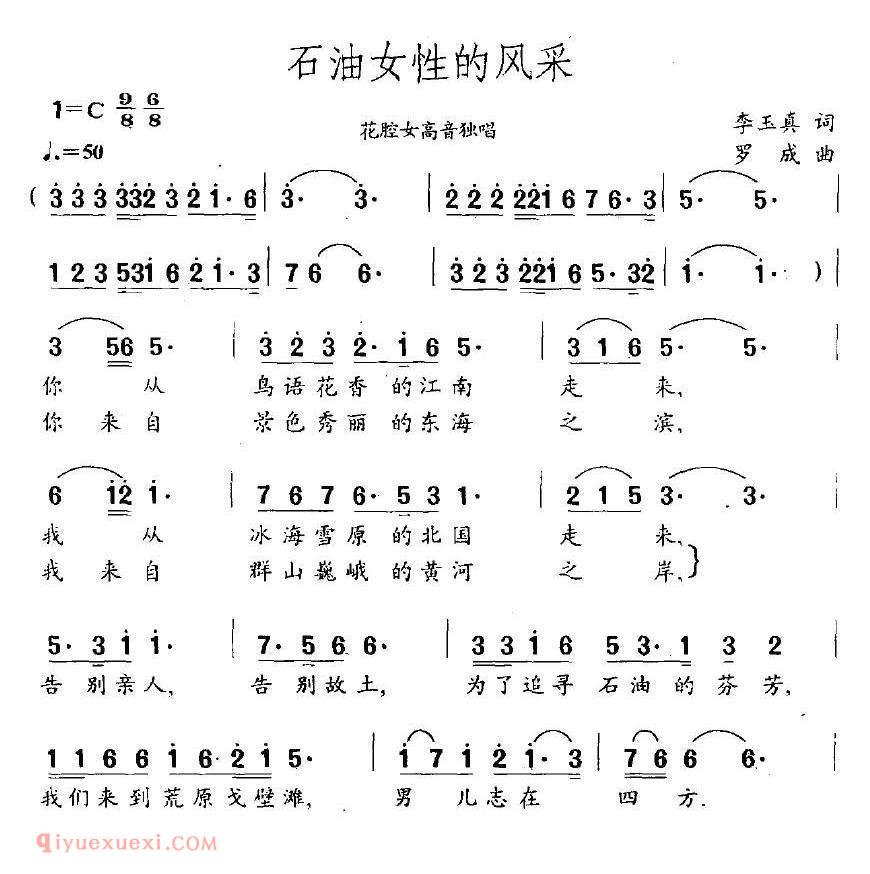 石油女性的风采
1=C 9/8 6/8
花腔女高音独唱
李玉真 词
♩.=50
罗 成 曲
( 3 3 3 3 3 2 3 2 1· 6 | 3· 3· | 2 2 2 2 2 1 6 7 6· 3 | 5· 5· |
1 2 3 5 3 1 6 2 1· 3 | 7 6 6· | 3 2 3 2 2 1 6 5· 3 2 | 1· 1· ) |
3 5 6 5· | 3 2 3 2· 1 6 5· | 3 1 6 5· 5· |
你 从 鸟语花香 的江南 走 来,
你 来自 景色秀丽 的东海 之 滨,
6 1 2 1· | 7 6 7 6· 5 3 1· | 2 1 5 3· 3· |
我 从 冰海雪原 的北国 走 来,
我 来自 群山巍峨 的黄河 之 岸,}
5· 3 1 1· | 7· 5 6 6· | 3 3 1 6 5 3· 1 3 2 |
告 别亲人, 告 别故土, 为了追寻 石油 的 芬 芳,
1 1 6 6 1 6· 2 1 5· | 1 7 1 2 1· 3 | 7 6 6 6· |
我们来到 荒原戈壁滩, 男 儿志在 四 方.
qiyuexuexi.com